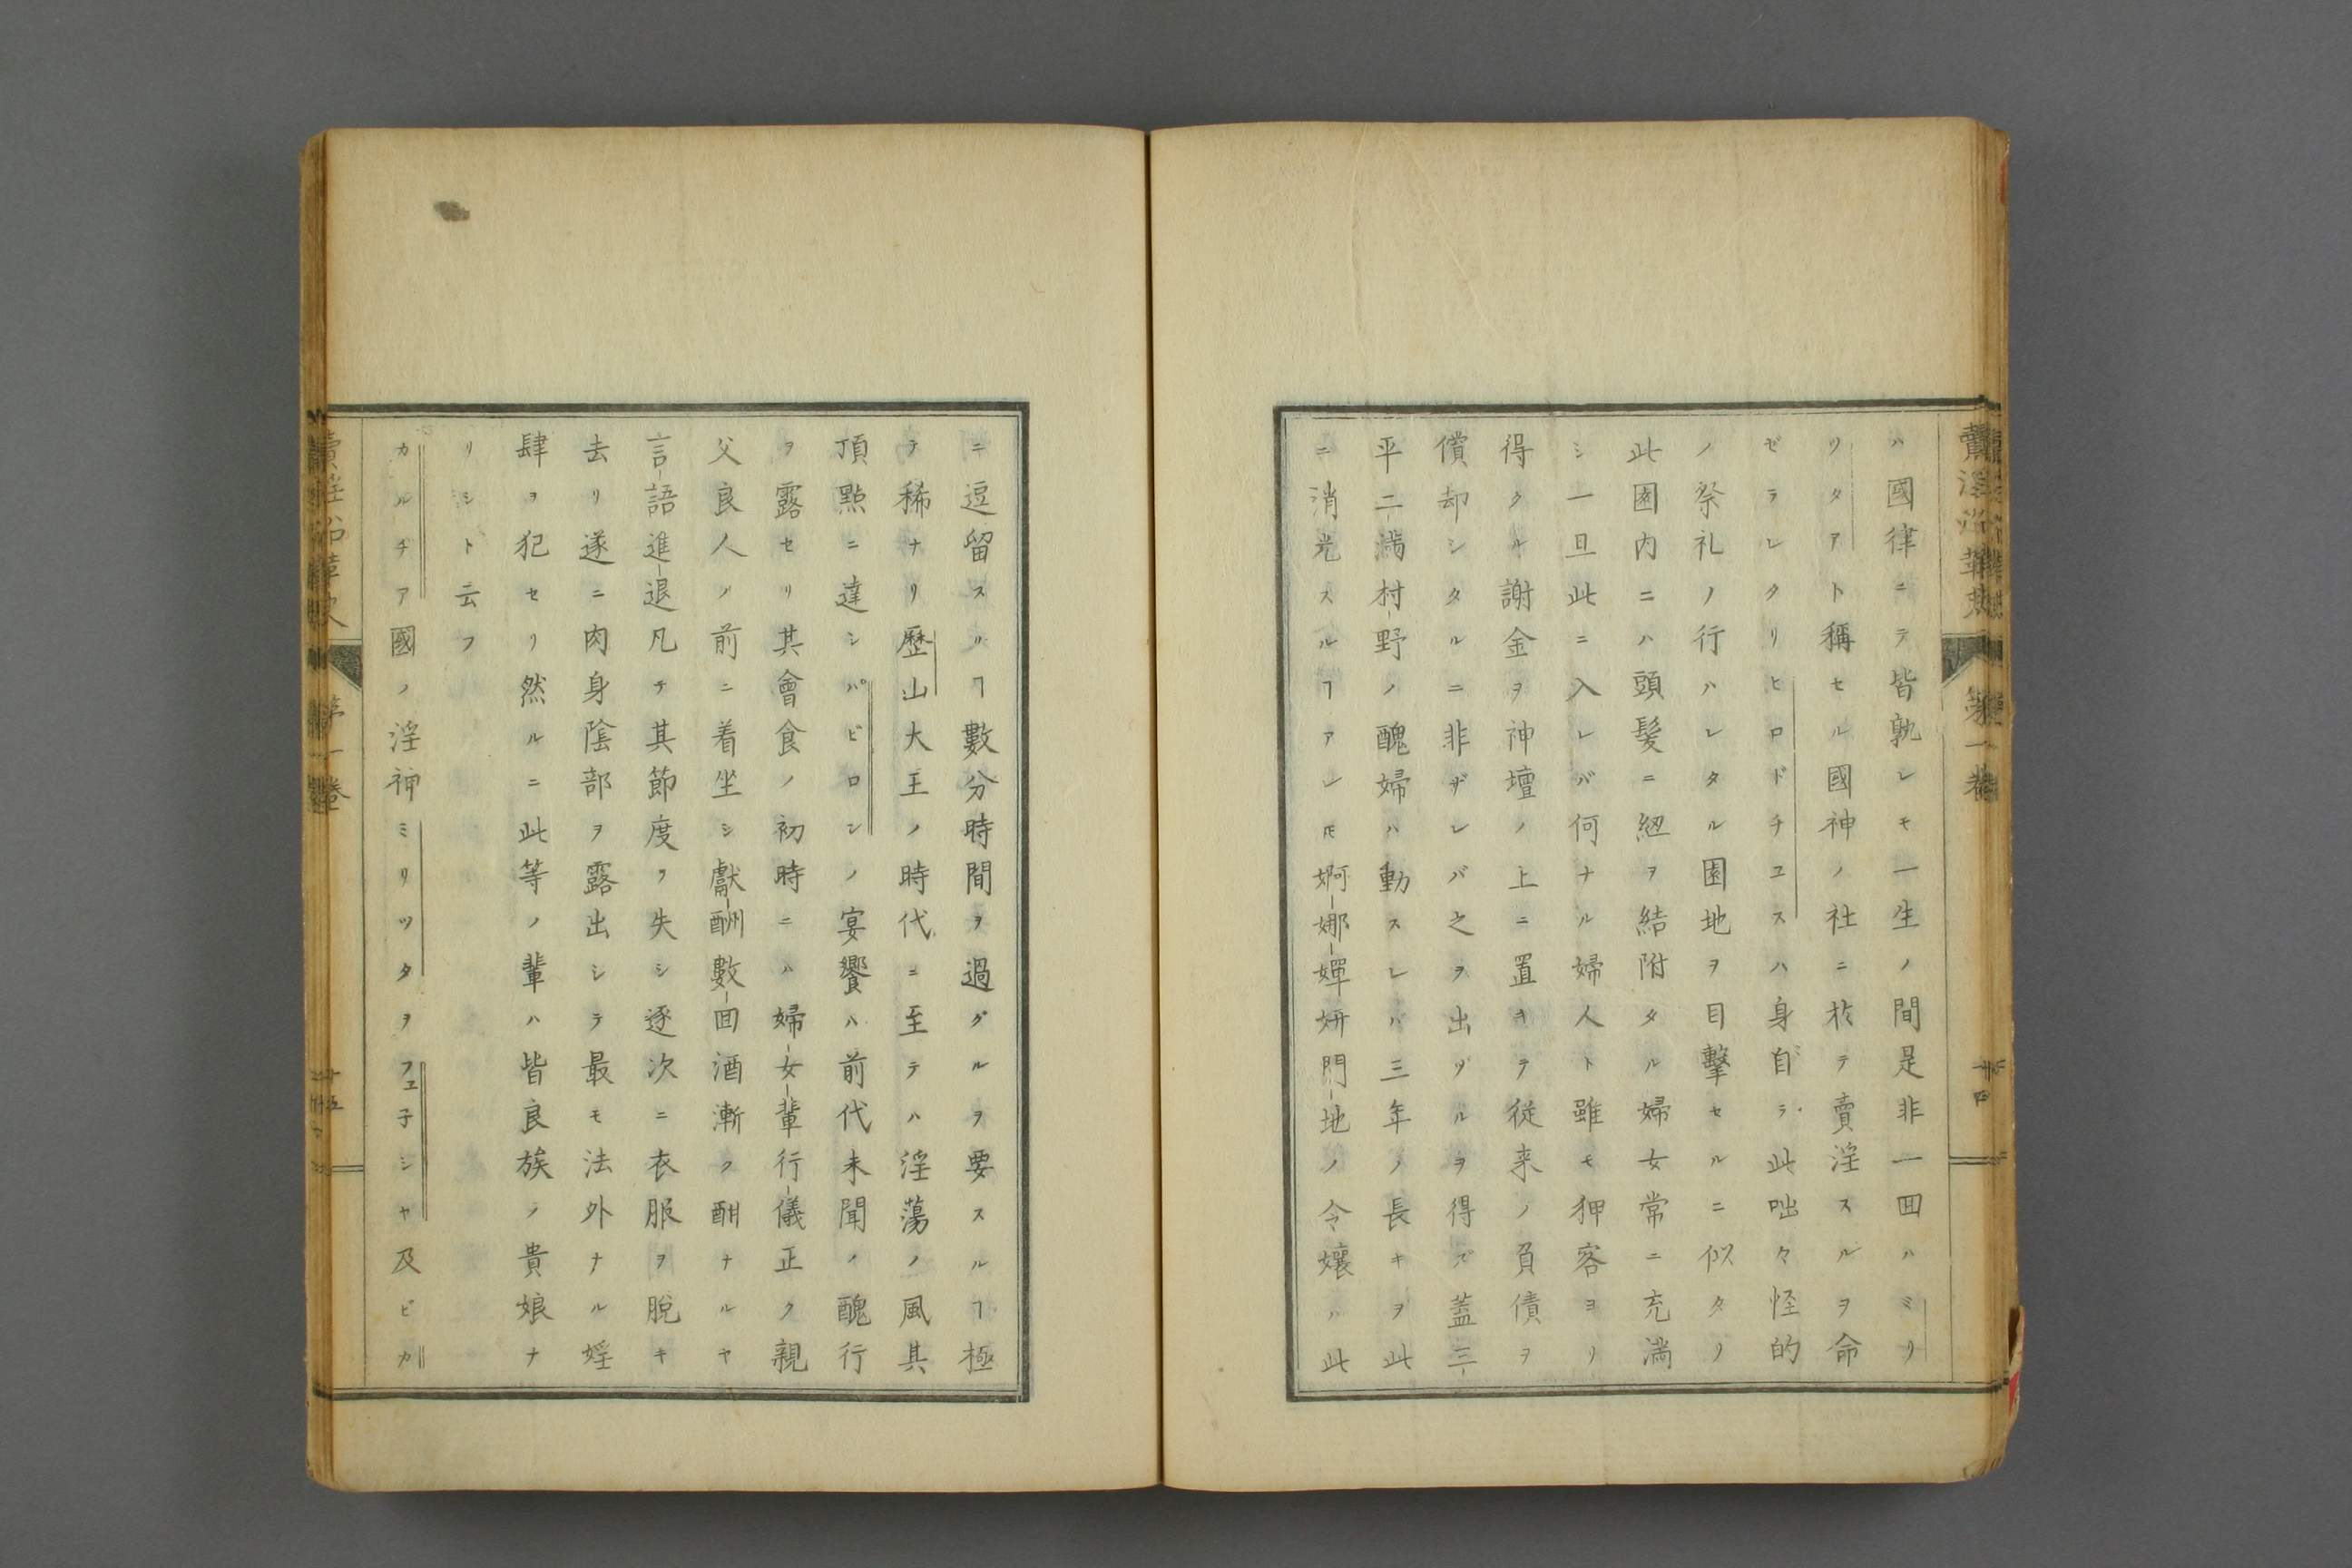 賣淫沿革史 第一卷 十四
ハ國律ニテ皆孰レモ一生ノ間是非一回ハミリ
リタアト稱セル國神ノ社ニ於テ賣淫スルヲ命
ゼラレタリヒロドチユスハ身自ラ此咄々怪的
ノ祭礼ノ行ハレタル園地ヲ目擊セルニ似タリ
此園内ニハ頭髪ニ紐ヲ結附タル婦女常ニ充満
シ一旦此ニ入レバ何ナル婦人ト雖モ狎客ヨリ
得タル謝金ヲ神壇ノ上ニ置キテ従来ノ負債ヲ
償却シタルニ非ザレバ之ヲ出ヅルヲ得ズ蓋三
平二満村野ノ醜婦ハ動スレバ三年ノ長キヲ此
ニ消光スルヿアレ𪜈婀娜嬋妍門地ノ令孃ハ此
ニ逗留スルヿ數分時間ヲ過グルヲ要スルヿ極
テ稀ナリ歷山大王ノ時代ニ至テハ淫蕩ノ風其
頂點ニ達シバビロンノ宴饗ハ前代未聞ノ醜行
ヲ露セリ其會食ノ初時ニハ婦女輩行儀正ク親
父良人ノ前ニ着坐シ獻酬數回酒漸ク酣ナルヤ
言語進退凡テ其節度ヲ失シ逐次ニ衣服ヲ脫キ
去リ遂ニ肉身陰部ヲ露出シテ最モ法外ナル婬
肆ヲ犯セリ然ルニ此等ノ輩ハ皆良族ノ貴娘ナ
リシト云フ
カルヂア國ノ淫神ミリツタヲフェ子シヤ及ビカ
賣淫沿革史 第一卷 十五